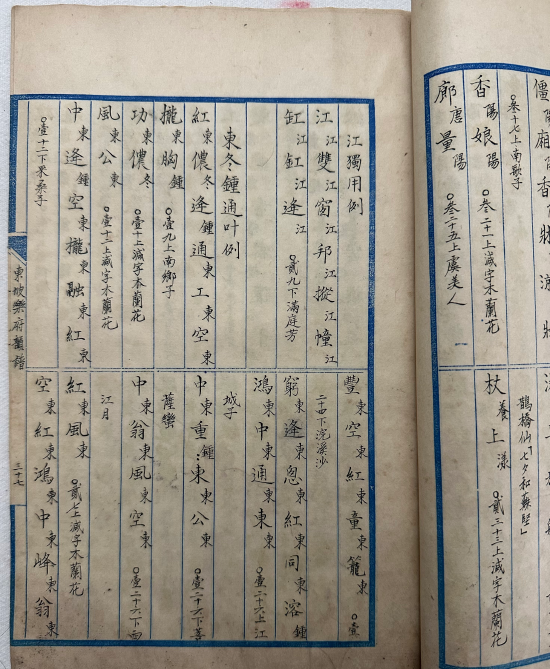 香陽娘陽 叁二十一上減字木蘭花
叁十七上南歌子
廊唐量陽 叁二十五上虞美人
鵲橋仙「七夕和蘇堅」
杖養上漾 貳三十三上減字木蘭花
江獨用例
江江雙江窗江邦江摐江幢江
缸江缸江逢江 貳九下滿庭芳
東冬鍾通叶例
紅東儂冬逢鍾通東工東空東
攏東胸鍾 壹九上南鄉子
功東儂冬 壹十上減字木蘭花
風東公東 壹十二上減字木蘭花
中東逢鍾空東攏東融東紅東
壹十二下采桑子
豐東空東紅東童東籠東 壹
二十四下浣溪沙
窮東逢鍾悤東紅東同東溶鍾
鴻東中東通東東東 壹二十六上江
城子
中東重鍾東東公東 壹二十六下菩
薩蠻
中東翁東風東空東 壹二十六下西
江月
紅東風東 貳七上減字木蘭花
空東紅東鴻東中東峰東翁東
東坡樂府韻譜
三十七